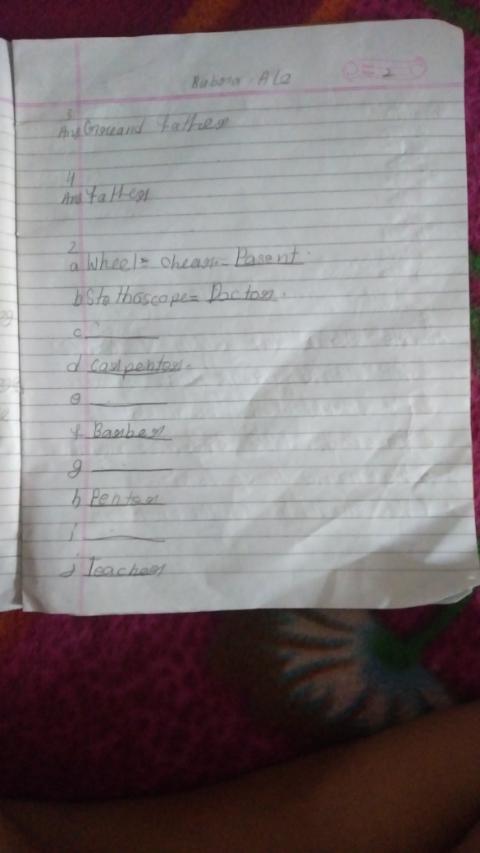 Rubina Ala
2
3
Ans Graeand father
4
Ans father
2
a Wheel = chear - Pasent.
b Stethoscope = Doctor.
c
d Carpentor.
e
f Barber
g
h Pentor
i
j Teacher